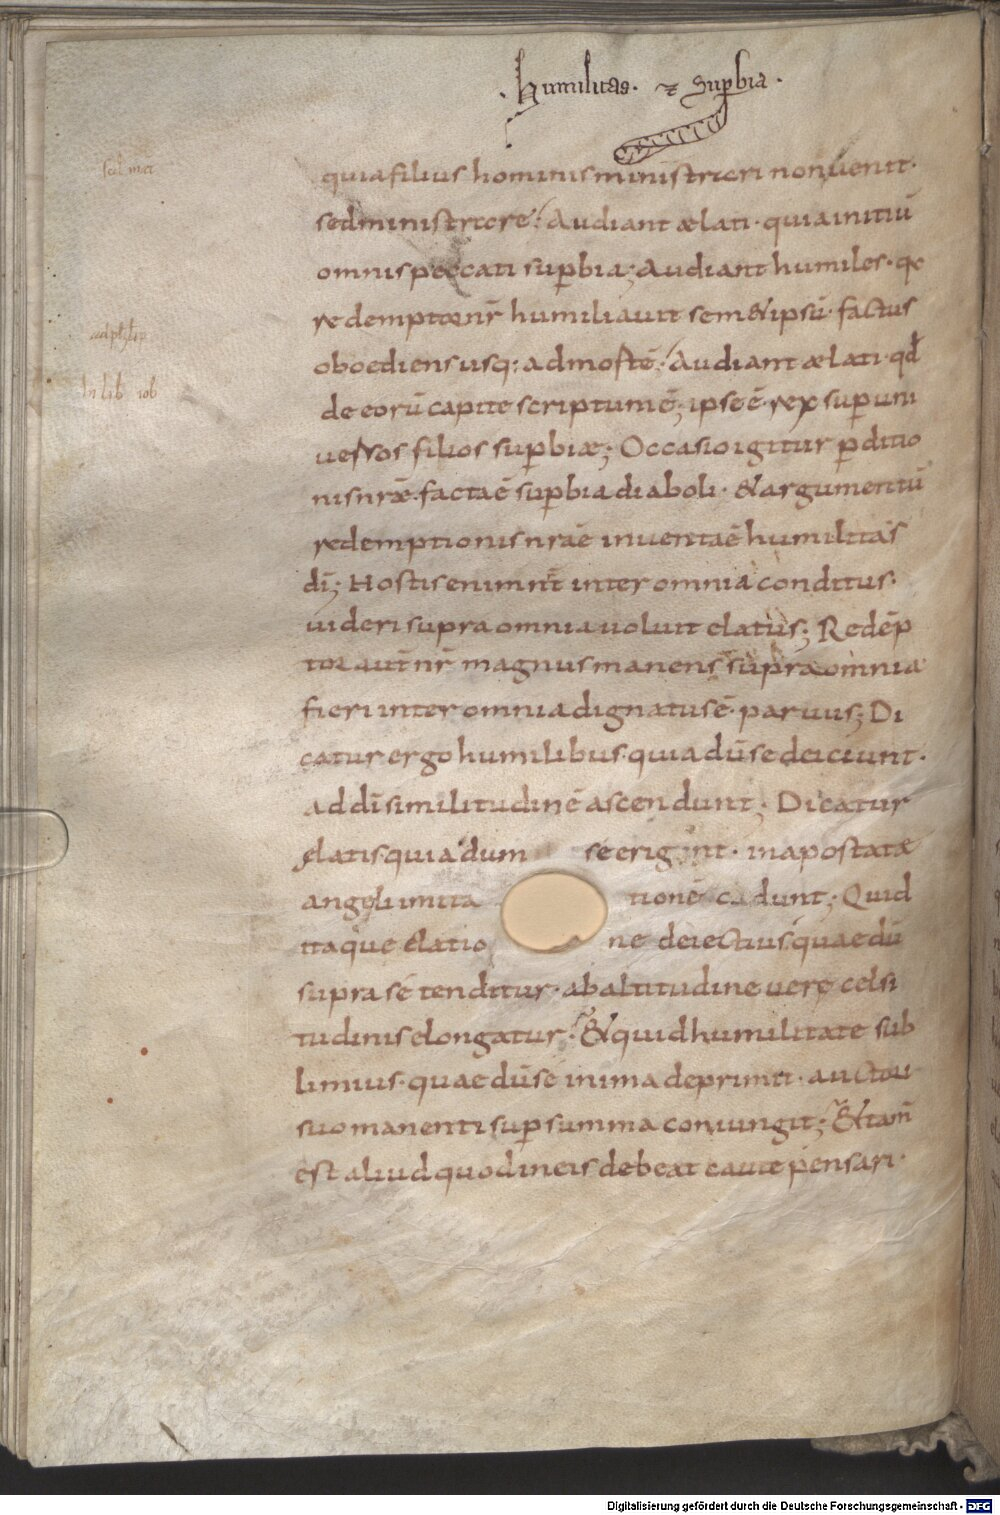 · humilitas · ⁊ Suꝑbia ·
quia filius hominis ministrari non uenit ·
sed ministrare; Audiant ælati · quia initiū
omnis peccati suꝑbia; Audiant humiles · qđ
redemptor nr̄ humiliauit sem&ipsū · factus
oboediens usq; ad mortē; Audiant ælati · qđ
de eorū capite scriptum ē; ipse ē rex suꝑ uni
uersos filios suꝑbiæ; Occasio igitur ꝑditio
nis nr̄æ · facta ē suꝑbia diaboli · & argumentū
redemptionis nrāe inuenta ē humilitas
dī; Hostis enim nr̄ inter omnia conditus ·
uideri supra omnia uoluit elatus; Redēp
tor aut̄ nr̄ magnus manens supra omnia
fieri inter omnia dignatus ē paruus; Di
catur ergo humilibus · quia dū se deiciunt ·
ad dī similitudinē ascendunt; Dicatur
elatis quia dum se erigunt · in apostatæ
angeli imita tionē cadunt; Quid
itaque elatio ne deiectius · quae dū
supra se tenditur · ab altitudine uere celsi
tudinis elongatur; & quid humilitate sub
limius · quae dū se in ima deprimit · auctori
suo manenti suꝑ summa coniungit; & tam̄
est aliud quod in eis debeat caute pensari ·
ad phylip
In lib iob
Digitalisierung gefördert durch die Deutsche Forschungsgemeinschaft - DFG